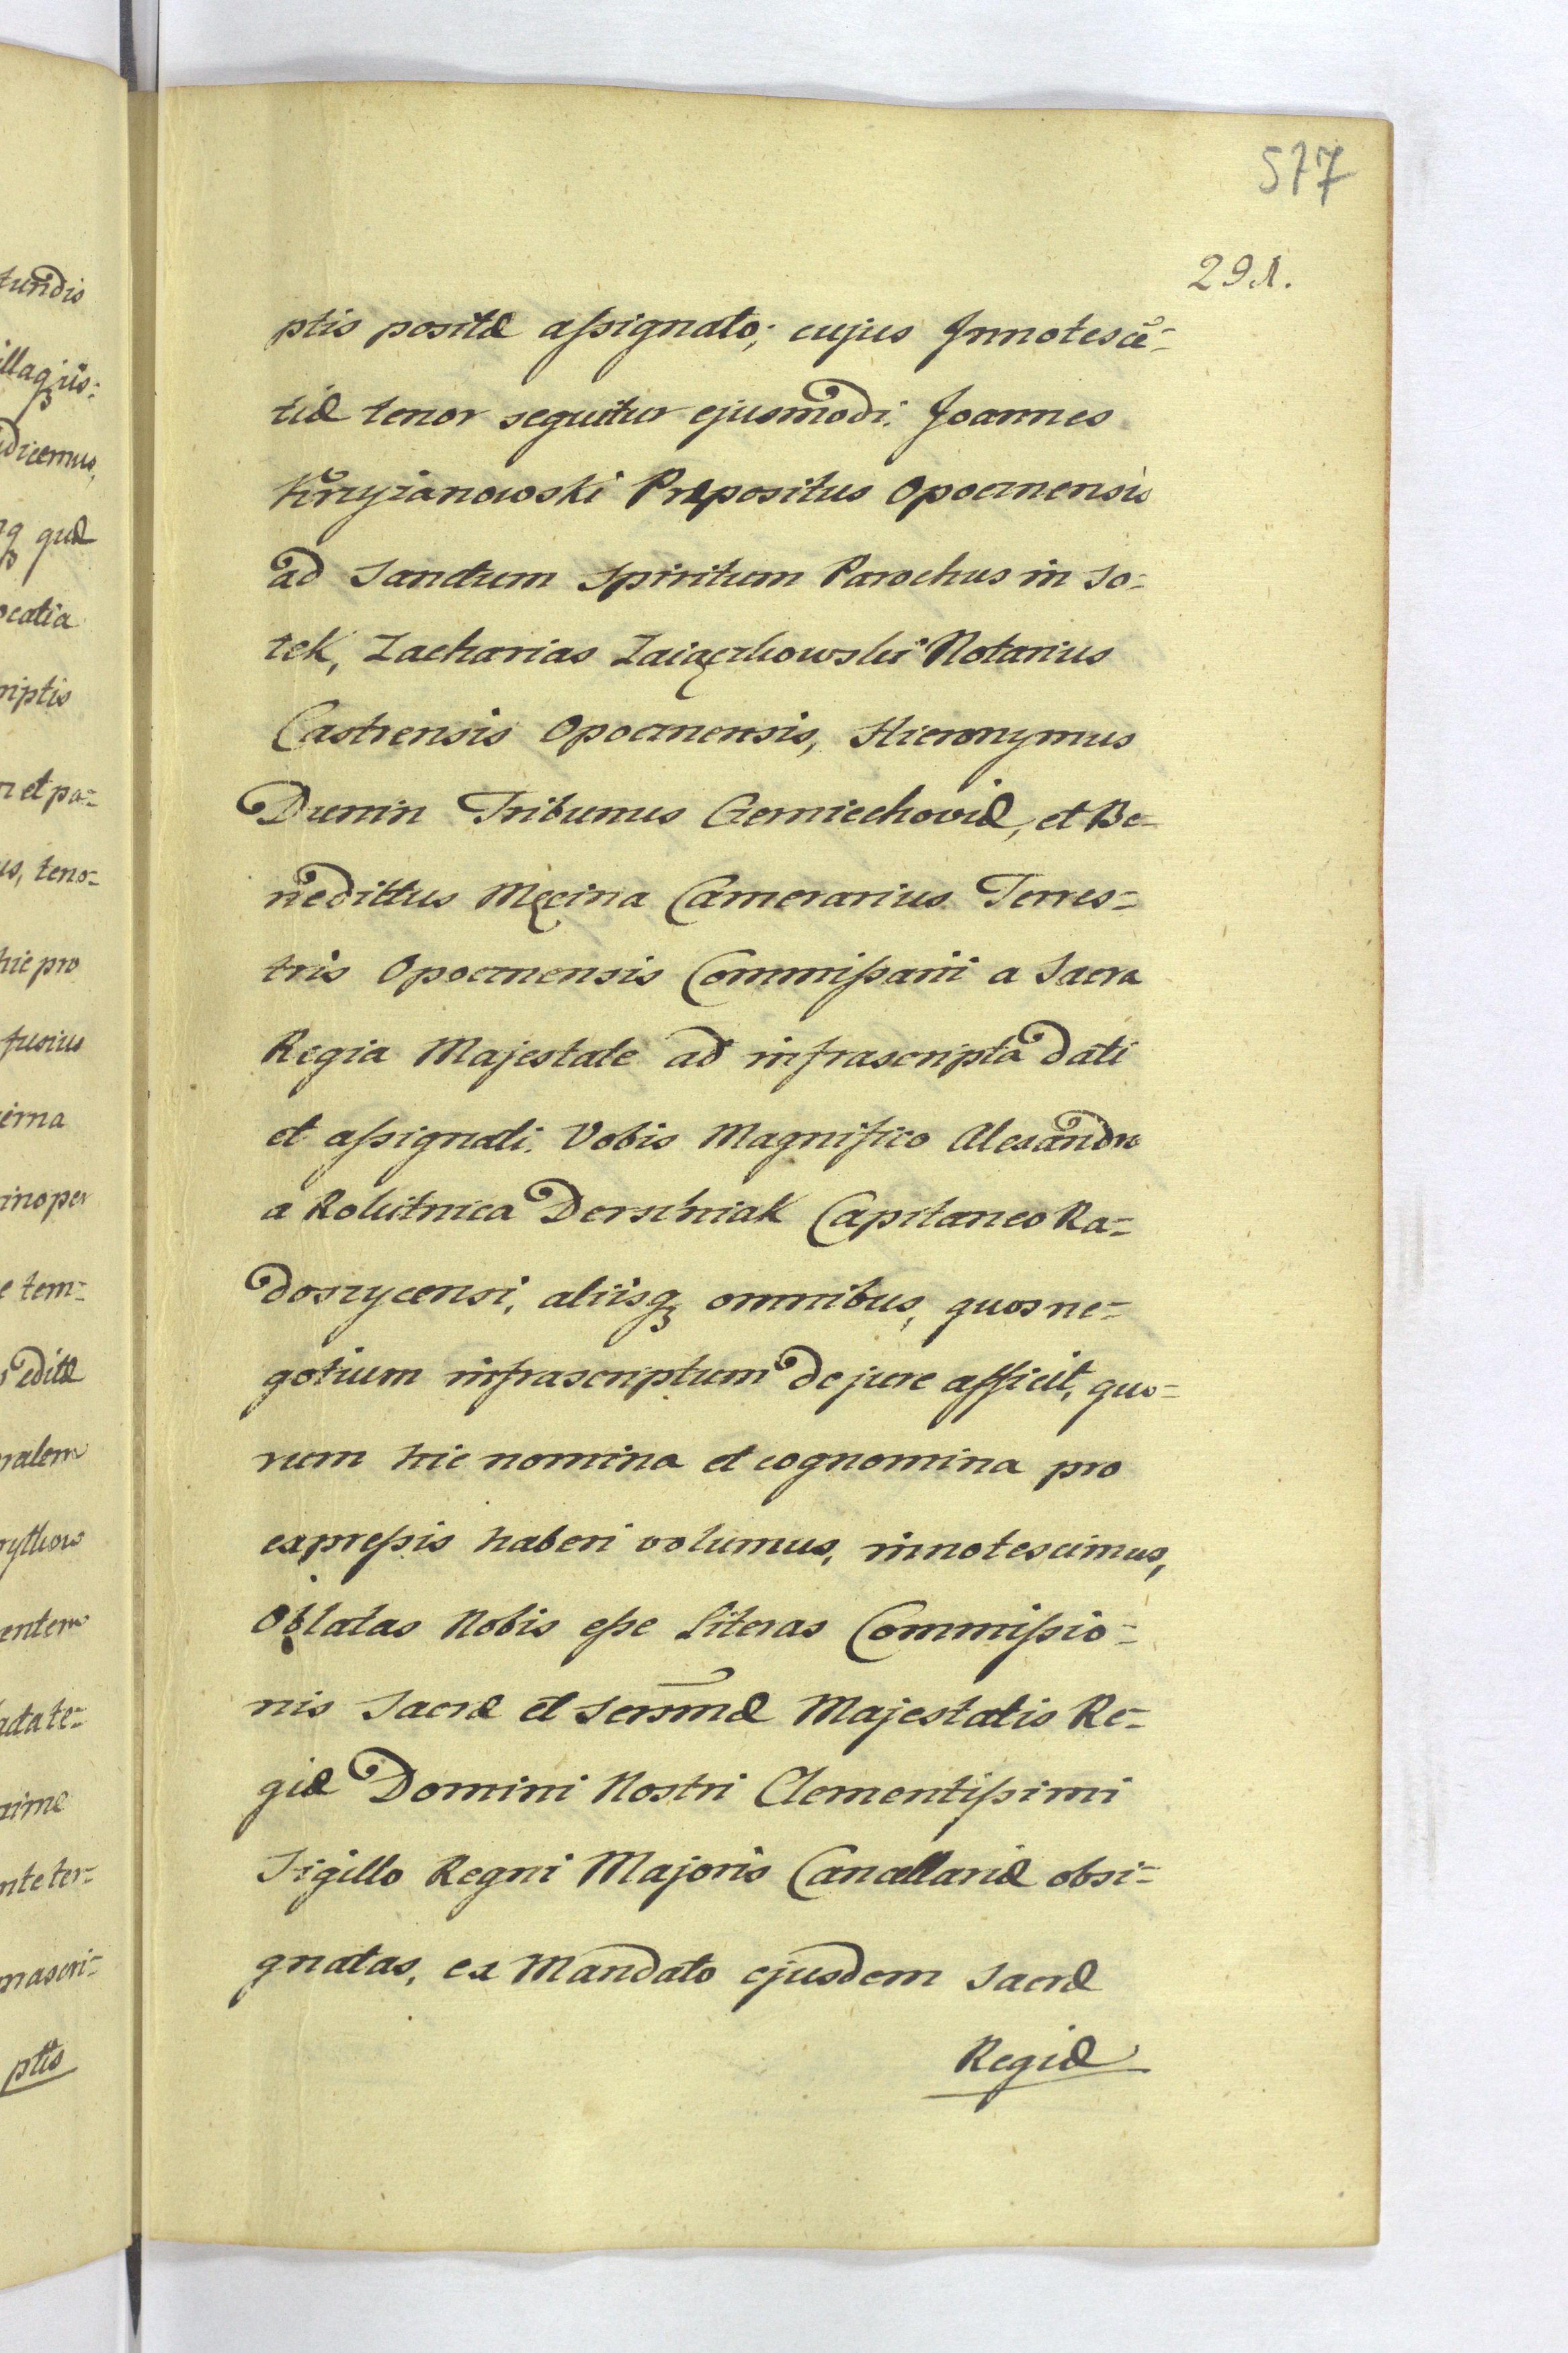 577
291.
ptis positæ assignato; cujus Innotescē-
tiæ tenor sequitur ejusmodi. Joannes
Krzyżanowski Præpositus Opocznensis
ad Sanctum Spiritum Parochus in So-
tek, Zacharias Zaiączkowski Notarius
Castrensis Opocznensis, Hieronymus
Dunin Tribunus Czerniechoviæ, et Be-
nedictus Męcina Camerarius Terres-
tris Opocznensis Commissarii a Sacra
Regia Majestate ad infrascripta dati
et assignati. Vobis Magnifico Alexandro
a Rokitnica Derschniak Capitaneo Ra-
doszycensi, aliisq; omnibus, quos ne-
gotium infrascriptum de jure afficit, quo-
rum hic nomina et cognomina pro
expressis haberi volumus, innotescimus,
Oblatas Nobis esse literas Commissio-
nis Sacræ et Sermæ Majestatis Re-
giæ Domini Nostri Clementissimi
Sigillo Regni Majoris Cancellariæ obsi-
gnatas, ex Mandato ejusdem Sacræ
Regiæ
tundis
dicemus,
quæ
riptis
et pa-
us, teno-
hic pro
fusius
e tem-
editæ
ptis